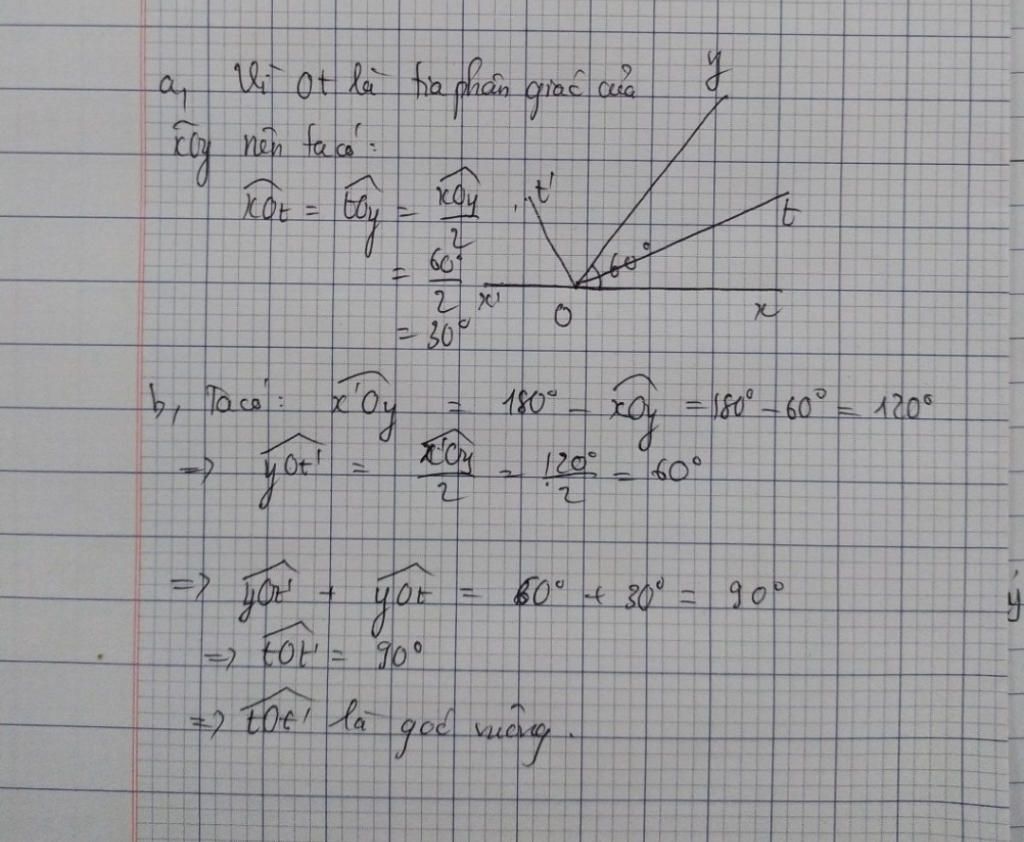 a, Vì Ot là tia phân giác của
x̂Oy nên ta có:
x̂Ot = t̂Oy = x̂Oy/2
= 60°/2
= 30°
y
t'
t
60°
x'
O
x
b, Ta có: x̂'Oy = 180° - x̂Oy = 180° - 60° = 120°
=> ŷOt' = x̂'Oy/2 = 120°/2 = 60°
=> ŷOt' + ŷOt = 60° + 30° = 90°
=> t̂Ot' = 90°
=> t̂Ot' là góc vuông.